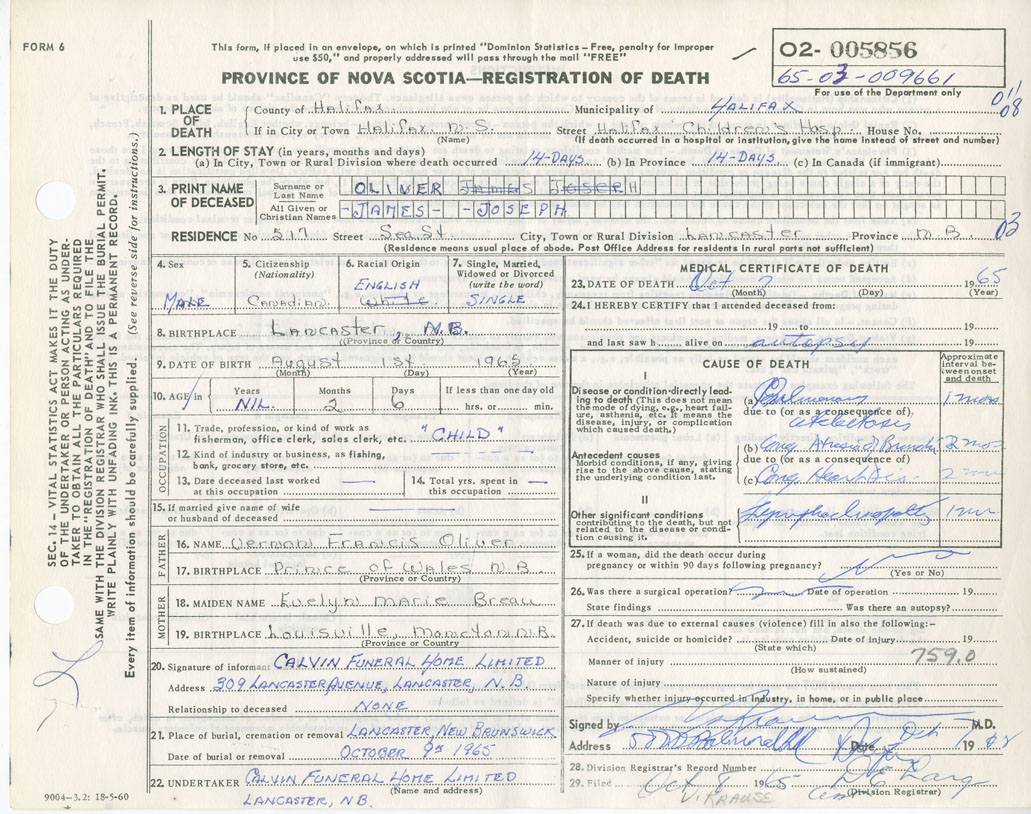 FORM 6
This form, if placed in an envelope, on which is printed "Dominion Statistics – Free, penalty for improper
use $50," and properly addressed will pass through the mail "FREE"
PROVINCE OF NOVA SCOTIA—REGISTRATION OF DEATH
02- 005856
65-03-009661
For use of the Department only
01/08
1. PLACE OF DEATH
County of Halifax. Municipality of HALIFAX
If in City or Town Halifax. N.S. Street Halifax Children's Hosp. House No.
(Name) (If death occurred in a hospital or institution, give the name instead of street and number)
2. LENGTH OF STAY (in years, months and days)
(a) In City, Town or Rural Division where death occurred 14-DAYS (b) In Province 14-DAYS (c) In Canada (if immigrant)
3. PRINT NAME OF DECEASED
Surname or Last Name OLIVER JAMES JOSEPH
All Given or Christian Names -JAMES- -JOSEPH
RESIDENCE No 517 Street Sea St. City, Town or Rural Division Lancaster Province N.B. 03
(Residence means usual place of abode. Post Office Address for residents in rural parts not sufficient)
4. Sex
MALE
5. Citizenship (Nationality)
Canadian.
6. Racial Origin
ENGLISH
White
7. Single, Married, Widowed or Divorced (write the word)
SINGLE
8. BIRTHPLACE LANCASTER, N.B.
(Province or Country)
9. DATE OF BIRTH August 1st 1965
(Month) (Day) (Year)
10. AGE in Years Months Days If less than one day old
NIL. 2 6 hrs. or min.
OCCUPATION
11. Trade, profession, or kind of work as
fisherman, office clerk, sales clerk, etc. "CHILD"
12. Kind of industry or business, as fishing,
bank, grocery store, etc.
13. Date deceased last worked
at this occupation
14. Total yrs. spent in
this occupation
15. If married give name of wife
or husband of deceased
FATHER
16. NAME Vernon Francis Oliver
17. BIRTHPLACE Prince of Wales N.B.
(Province or Country)
MOTHER
18. MAIDEN NAME Evelyn Marie Breau
19. BIRTHPLACE Louisville, Moncton N.B.
(Province or Country)
20. Signature of informant CALVIN FUNERAL HOME LIMITED
Address 309 LANCASTER AVENUE, LANCASTER, N.B.
Relationship to deceased NONE
21. Place of burial, cremation or removal LANCASTER, NEW BRUNSWICK
Date of burial or removal OCTOBER 9th 1965
22. UNDERTAKER CALVIN FUNERAL HOME LIMITED
(Name and address)
LANCASTER, N.B.
9004-3.2: 18-5-60
MEDICAL CERTIFICATE OF DEATH
23. DATE OF DEATH Oct 7 1965
(Month) (Day) (Year)
24. I HEREBY CERTIFY that I attended deceased from:
19 to 19
and last saw h alive on autopsy 19
CAUSE OF DEATH
Approximate interval between onset and death
I
Disease or condition directly leading to death (This does not mean the mode of dying, e.g., heart failure, asthenia, etc. It means the disease, injury, or complication which caused death.)
(a) Pulmonary
due to (or as a consequence of),
atelectosis
Antecedent causes
Morbid conditions, if any, giving rise to the above cause, stating the underlying condition last.
(b) Cong. Atresia of Bronchi 2 mos
due to (or as a consequence of)
(c) Cong. Heart Dis. 2
II
Other significant conditions
contributing to the death, but not related to the disease or condition causing it.
25. If a woman, did the death occur during
pregnancy or within 90 days following pregnancy?
(Yes or No)
26. Was there a surgical operation? Date of operation 19
State findings Was there an autopsy?
27. If death was due to external causes (violence) fill in also the following:–
Accident, suicide or homicide? Date of injury 19
(State which)
759.0
Manner of injury
(How sustained)
Nature of injury
Specify whether injury occurred in industry, in home, or in public place
Signed by M.D.
Address Date Oct 7 19
28. Division Registrar's Record Number
29. Filed Oct 8 1965
(Division Registrar)
V. KRAUSE
SEC. 14 – VITAL STATISTICS ACT MAKES IT THE DUTY
OF THE UNDERTAKER OR PERSON ACTING AS UNDER-
TAKER TO OBTAIN ALL THE PARTICULARS REQUIRED
IN THE "REGISTRATION OF DEATH" AND TO FILE THE
SAME WITH THE DIVISION REGISTRAR WHO SHALL ISSUE THE BURIAL PERMIT.
WRITE PLAINLY WITH UNFADING INK. THIS IS A PERMANENT RECORD.
Every item of information should be carefully supplied. (See reverse side for instructions.)